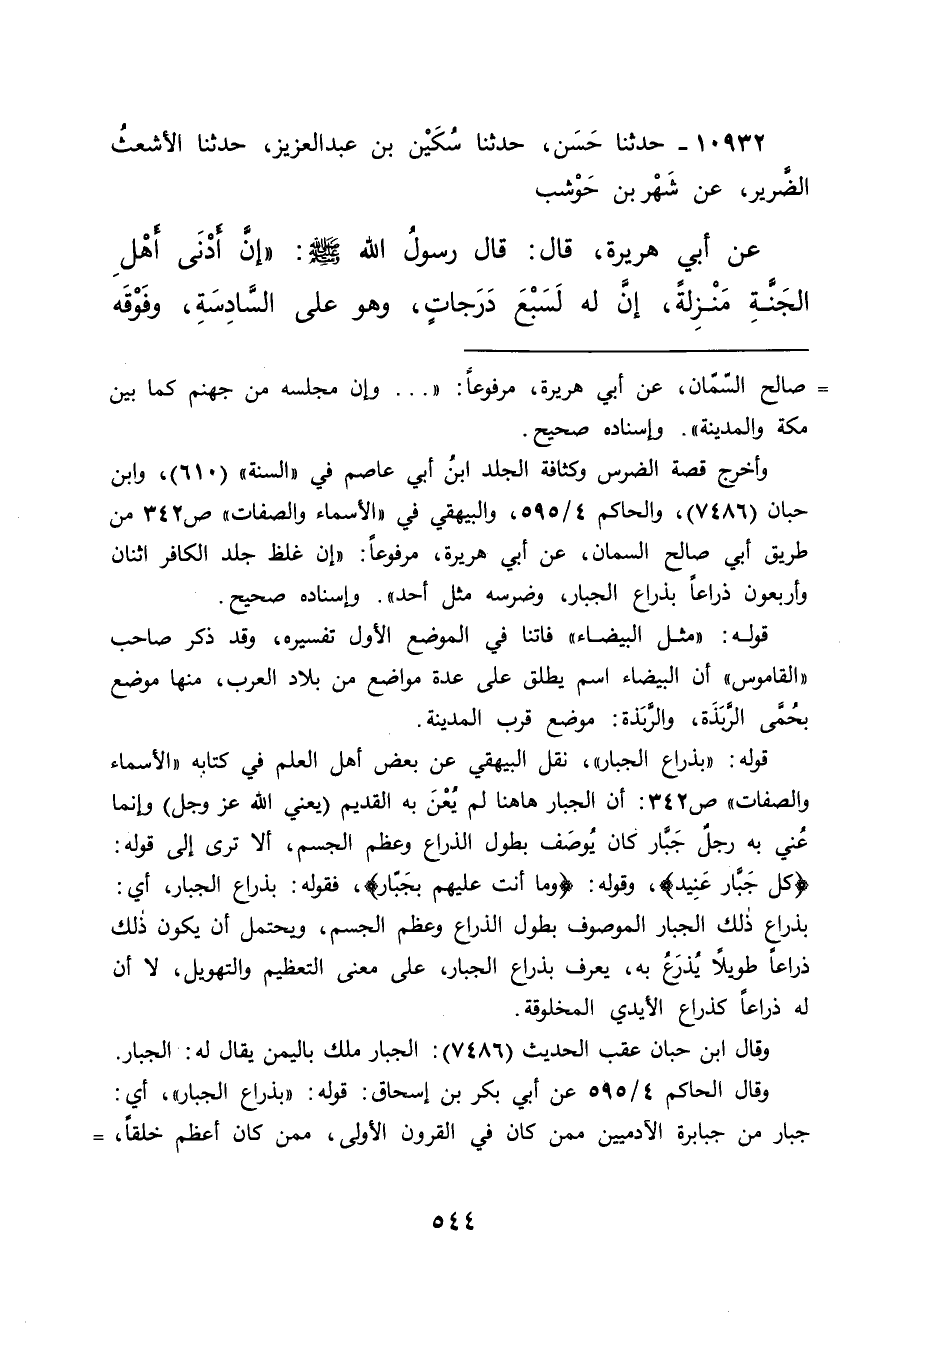 ١٠٩٣٢ ـ حدثنا حَسَن، حدثنا سُكَيْن بن عبدالعزيز، حدثنا الأشعثُ
الضَّرير، عن شَهْر بن حَوْشب
عن أبي هريرة، قال: قال رسولُ الله ﷺ: «إنَّ أَدْنَى أَهْلِ
الجَنَّةِ مَنْزِلةً، إنَّ له لَسَبْعَ دَرَجاتٍ، وهو على السَّادِسَةِ، وفَوْقَه
= صالح السَّمَّان، عن أبي هريرة، مرفوعاً: «... وإن مجلسه من جهنم كما بين
مكة والمدينة». وإسناده صحيح.
وأخرج قصة الضرس وكثافة الجلد ابنُ أبي عاصم في «السنة» (٦١٠)، وابن
حبان (٧٤٨٦)، والحاكم ٥٩٥/٤، والبيهقي في «الأسماء والصفات» ص٣٤٢ من
طريق أبي صالح السمان، عن أبي هريرة، مرفوعاً: «إن غلظ جلد الكافر اثنان
وأربعون ذراعاً بذراع الجبار، وضرسه مثل أحد». وإسناده صحيح.
قوله: «مثل البيضاء» فاتنا في الموضع الأول تفسيره، وقد ذكر صاحب
«القاموس» أن البيضاء اسم يطلق على عدة مواضع من بلاد العرب، منها موضع
بحُمَّى الرَّبَذَة، والرَّبَذة: موضع قرب المدينة.
قوله: «بذراع الجبار»، نقل البيهقي عن بعض أهل العلم في كتابه «الأسماء
والصفات» ص٣٤٢: أن الجبار هاهنا لم يُعْنَ به القديم (يعني الله عز وجل) وإنما
عُني به رجلٌ جَبَّار كان يُوصَف بطول الذراع وعظم الجسم، ألا ترى إلى قوله:
﴿كل جَبَّار عَنِيد﴾، وقوله: ﴿وما أنت عليهم بجَبَّار﴾، فقوله: بذراع الجبار، أي:
بذراع ذٰلك الجبار الموصوف بطول الذراع وعظم الجسم، ويحتمل أن يكون ذٰلك
ذراعاً طويلاً يُذرَعُ به، يعرف بذراع الجبار، على معنى التعظيم والتهويل، لا أن
له ذراعاً كذراع الأيدي المخلوقة.
وقال ابن حبان عقب الحديث (٧٤٨٦): الجبار ملك باليمن يقال له: الجبار.
وقال الحاكم ٥٩٥/٤ عن أبي بكر بن إسحاق: قوله: «بذراع الجبار»، أي:
جبار من جبابرة الآدميين ممن كان في القرون الأولى، ممن كان أعظم خلقاً، =
٥٤٤